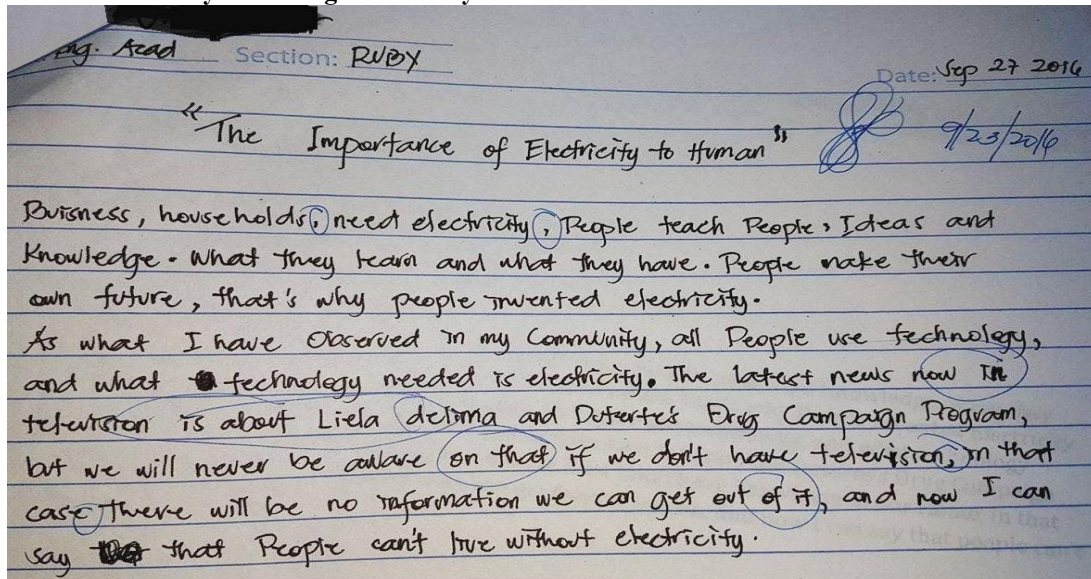 Eng. Acad Section: RUBY
Date: Sep 27 2016
"The Importance of Electricity to Human" 9/23/2016
Buisness, households, need electricity, People teach People, Ideas and
Knowledge. What they learn and what they have. People make their
own future, that's why people invented electricity.
As what I have Observed in my Community, all People use technology,
and what technology needed is electricity. The latest news now in
television is about Liela delima and Duterte's Drug Campaign Program,
but we will never be aware on that if we don't have television, in that
case there will be no information we can get out of it, and now I can
say that People can't live without electricity.